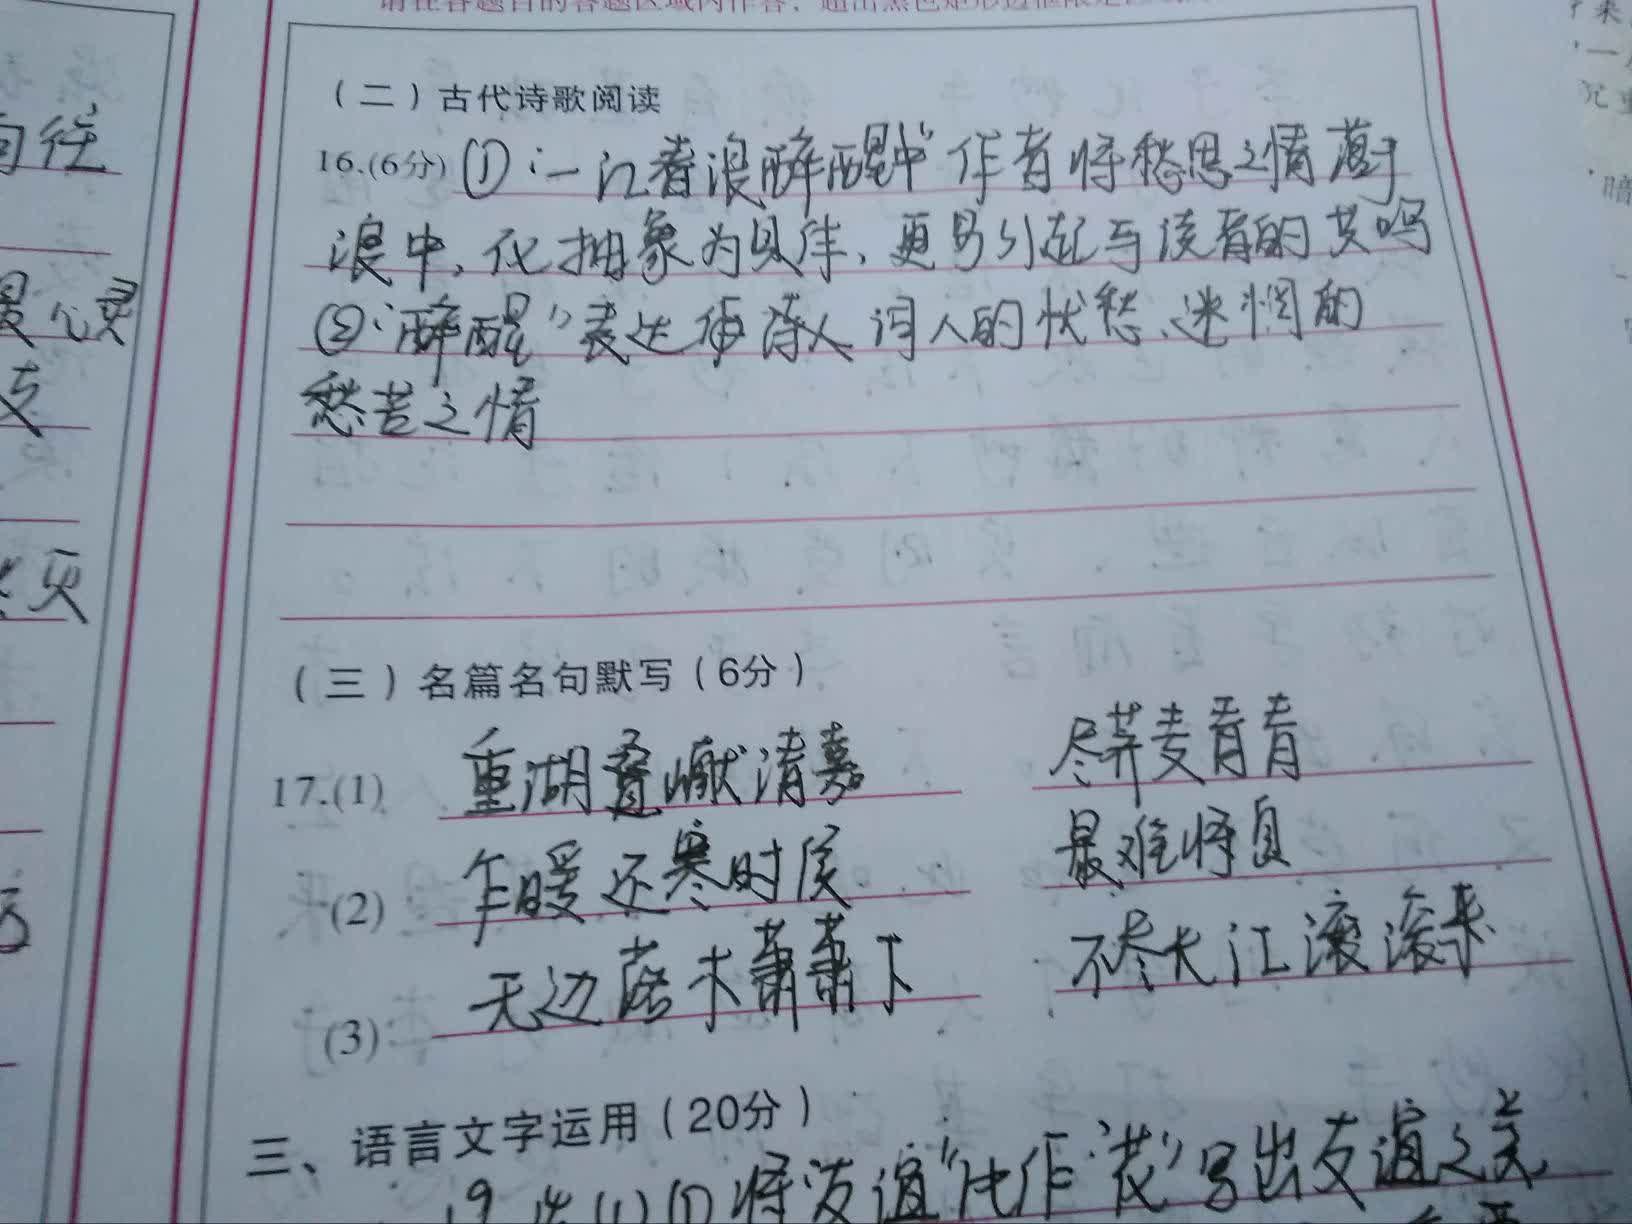 （二）古代诗歌阅读
16.(6分) ①“一江春浪醉醒中”作者将愁思之情落于
浪中，化抽象为具体，更易引起与读者的共鸣
②“醉醒”表达 词人的忧愁、迷惘的
愁苦之情
（三）名篇名句默写（6分）
17.(1) 重湖叠巘清嘉 尽荠麦青青
(2) 乍暖还寒时候 最难将息
(3) 无边落木萧萧下 不尽长江滚滚来
三、语言文字运用（20分）
将友谊“比作“花”写出友谊之美